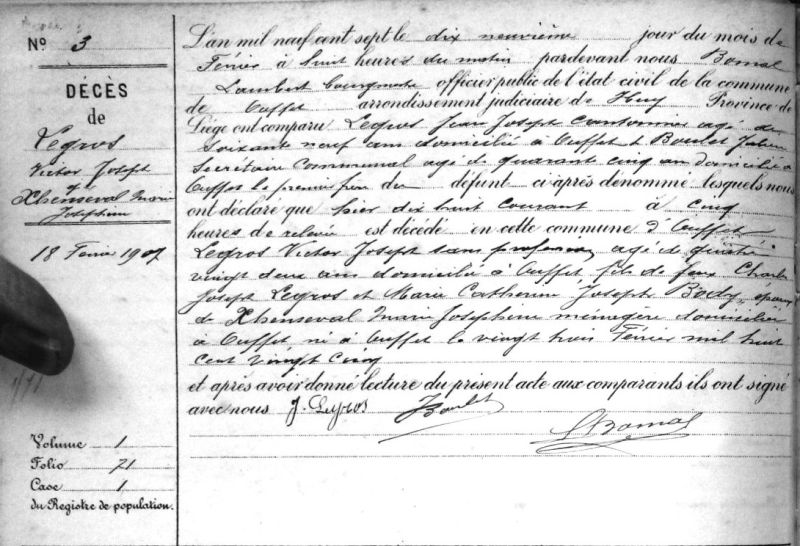 Nº 3
DÉCÈS
de
Legros
Victor Joseph
x
Xhenseval Marie
Josephine
18 Fevrier 1907
Volume 1
Folio 71
Case 1
du Registre de population.
L'an mil neuf cent sept le dix neuvième jour du mois de
Février à huit heures du matin pardevant nous Bomal
Lambert bourgmestre officier public de l'état civil de la commune
de Ouffet arrondissement judiciaire de Huy Province de
Liége ont comparu Legros Jean Joseph cantonnier agé de
soixante neuf ans domicilié à Ouffet & Boulet Julien
Secrétaire Communal agé de quarante cinq ans domicilié à
Ouffet le premier frère du défunt ci-après dénommé lesquels nous
ont déclaré que hier dix huit courant à cinq
heures de relevée est décédé en cette commune d'Ouffet
Legros Victor Joseph sans profession agé de quatre
vingt deux ans domicilié à Ouffet fils de feux Charles
Joseph Legros et Marie Catherine Joseph Body, époux
de Xhenseval Marie Josephine ménagère domiciliée
à Ouffet né à Ouffet le vingt trois Février mil huit
cent vingt cinq
et après avoir donné lecture du présent acte aux comparants ils ont signé
avec nous J. Legros JBoulet
LBomal